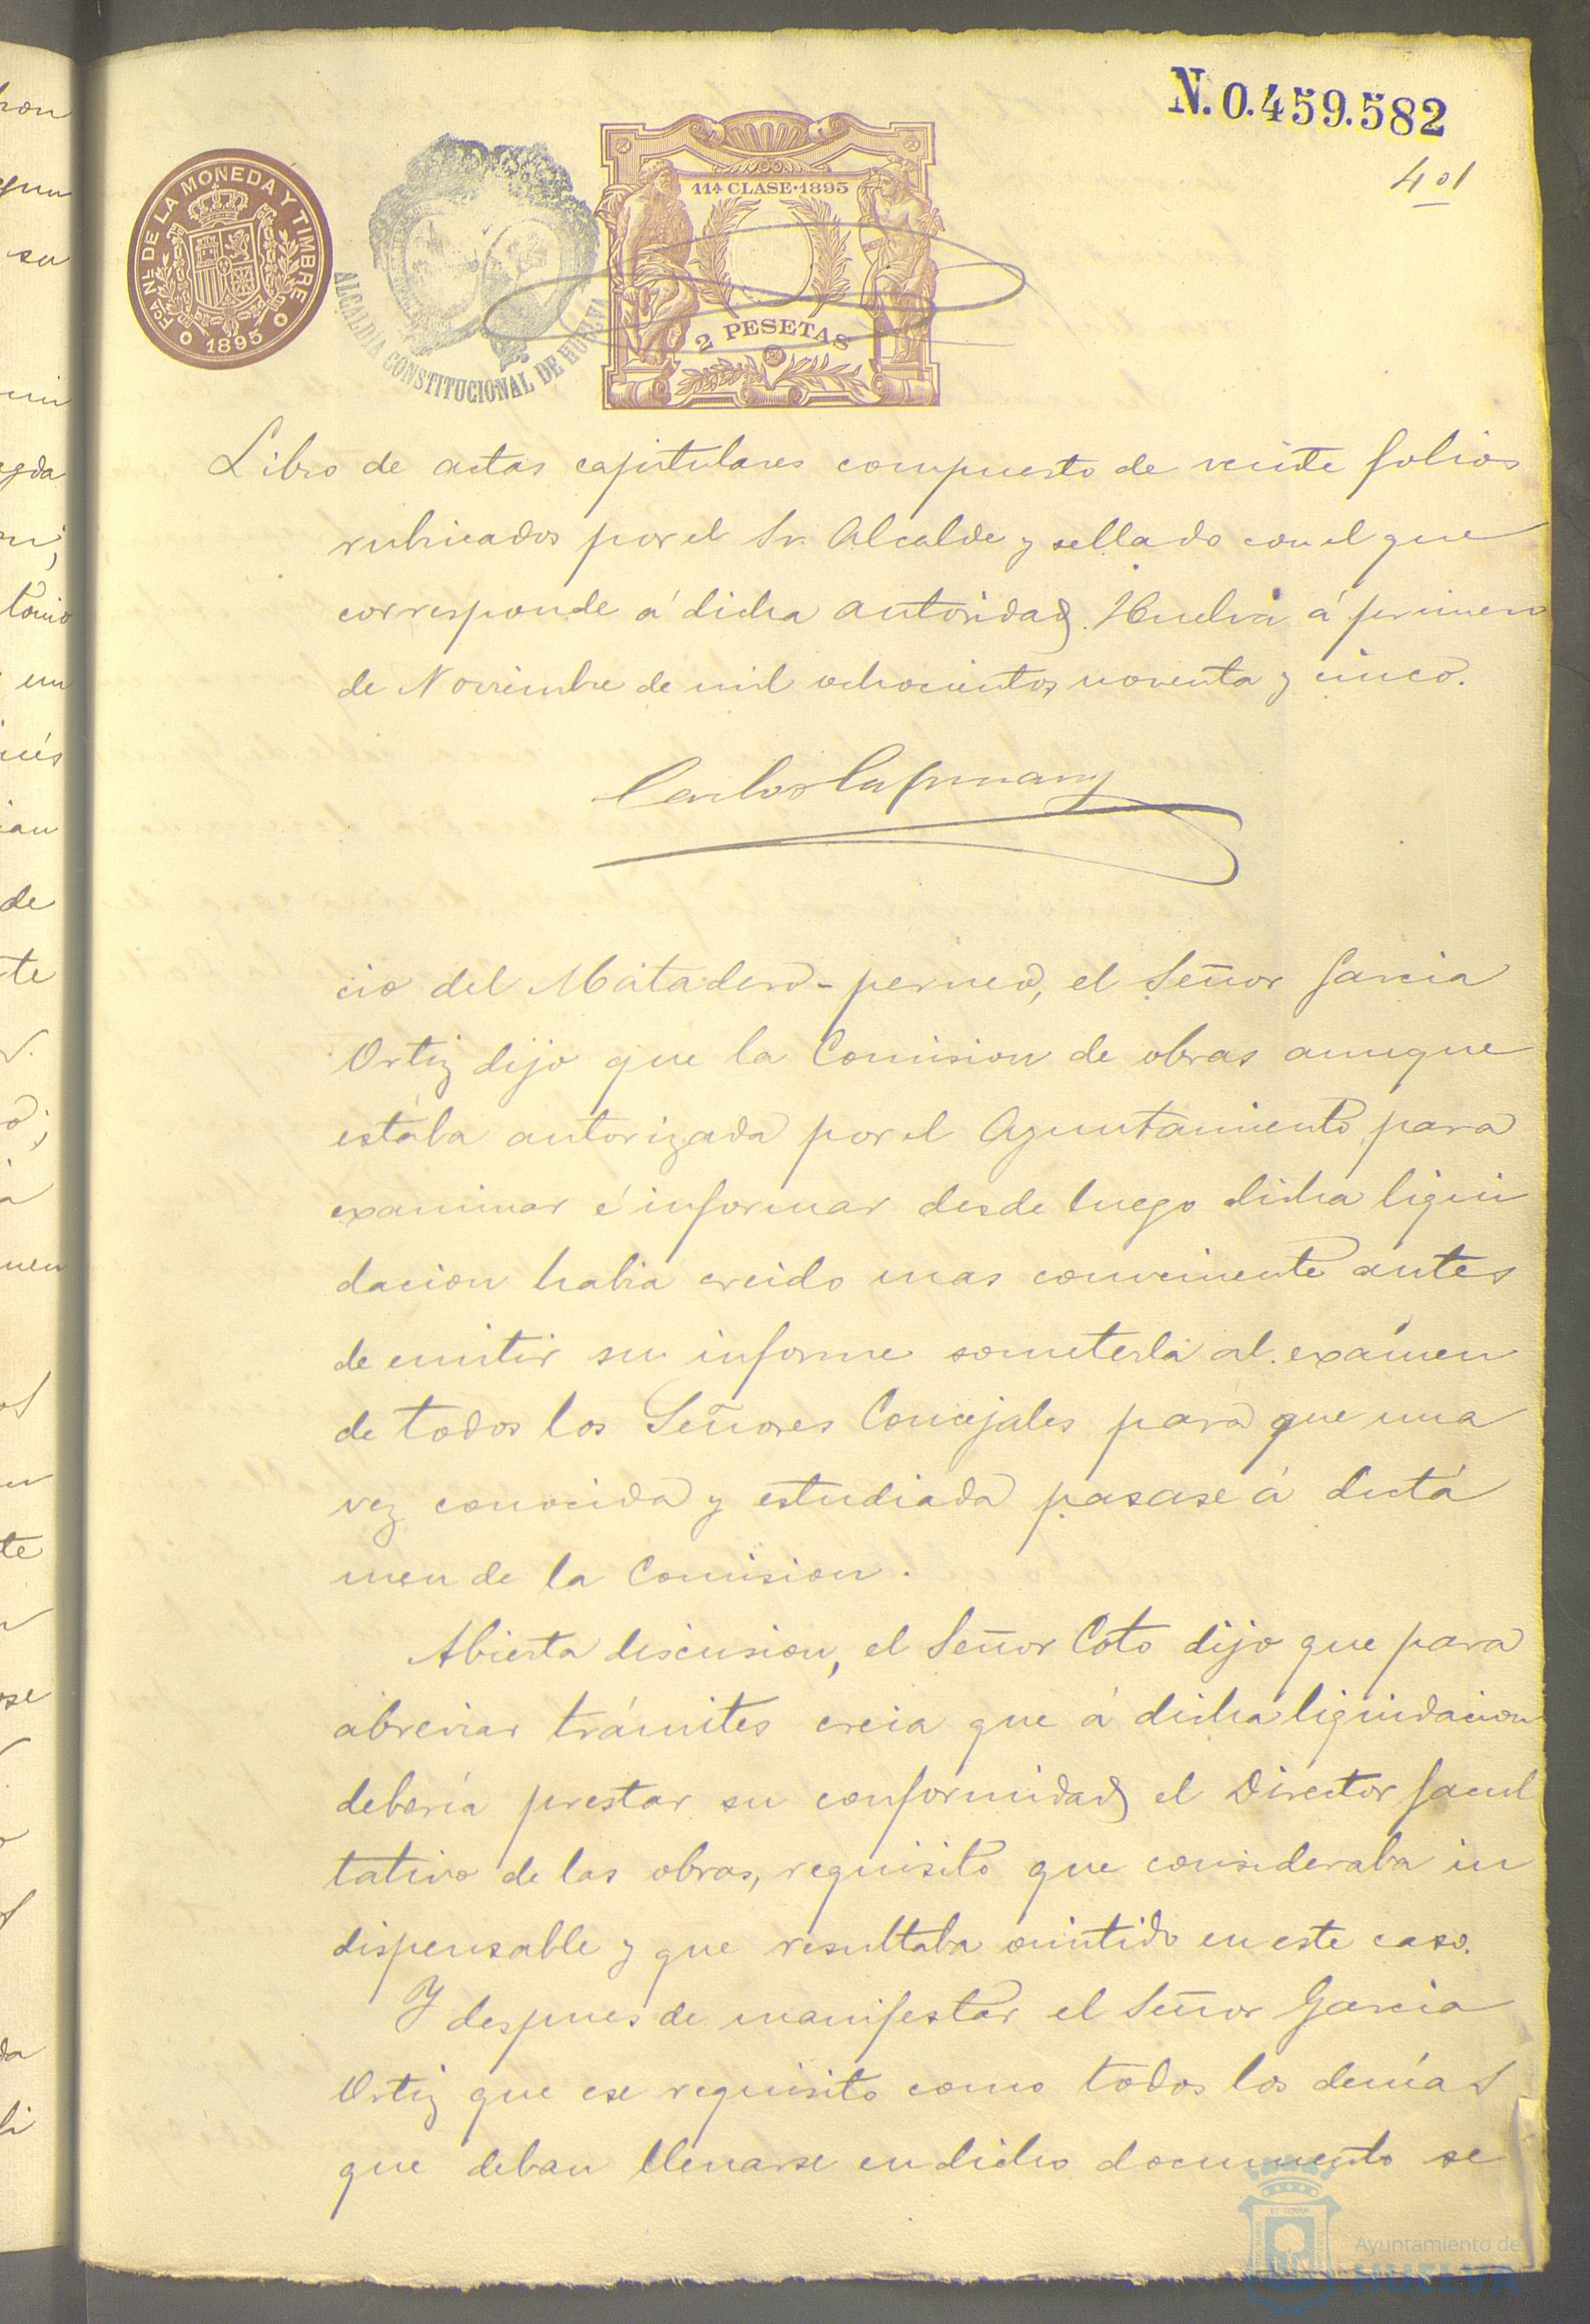 N. 0.459.582
401
FCA. NL. DE LA MONEDA Y TIMBRE
1895
ALCALDÍA CONSTITUCIONAL DE HUELVA
11ª CLASE·1895
2 PESETAS
Libro de actas capitulares compuesto de veinte folios
rubricados por el Sr. Alcalde y sellado con el que
corresponde á dicha autoridad. Huelva á primero
de Noviembre de mil ochocientos noventa y cinco.
Carlos
cio del Matadero-perneo, el Señor Garcia
Ortiz dijo que la Comision de obras aunque
estába autorizada por el Ayuntamiento para
examinar é informar desde luego dicha liqui
dacion habia creido mas conveniente antes
de emitir su informe someterla al exámen
de todos los Señores Concejales para que una
vez conocida y estudiada pasase á dictá
men de la Comision.
Abierta discusion, el Señor Coto dijo que para
abreviar trámites creia que á dicha liquidacion
debería prestar su conformidad el Director facul
tativo de las obras, requisito que consideraba in
dispensable y que resultaba omitido en este caso.
Y despues de manifestar el Señor Garcia
Ortiz que ese requisito como todos los demás
que deban llenarse en dicho documento se
Ayuntamiento de
HUELVA